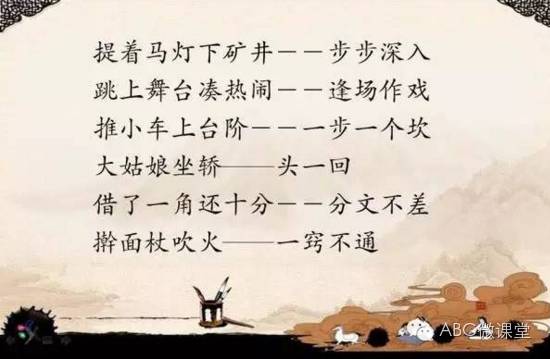 提着马灯下矿井－－步步深入
跳上舞台凑热闹－－逢场作戏
推小车上台阶－－一步一个坎
大姑娘坐轿——头一回
借了一角还十分－－分文不差
擀面杖吹火——一窍不通
ABG微课堂